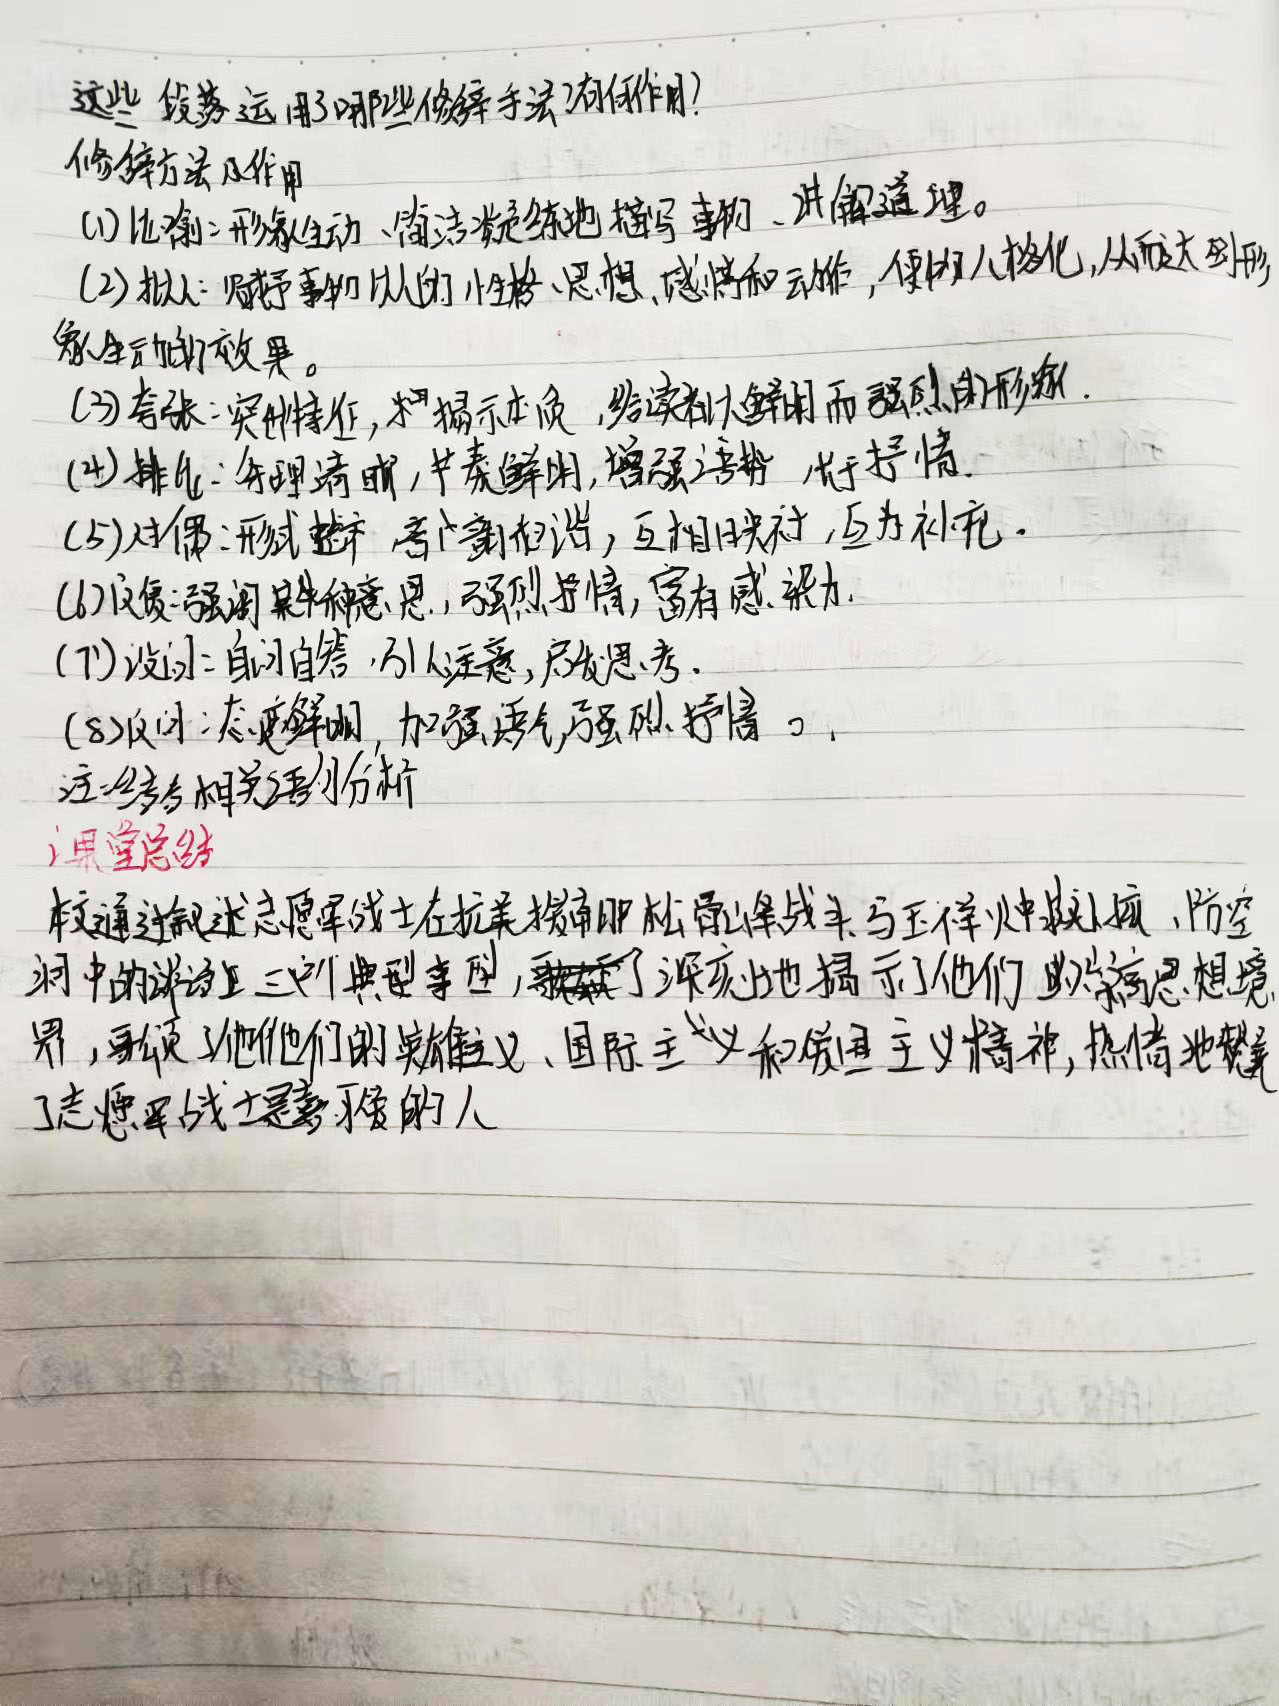 这些段落运用了哪些修辞手法?有何作用?
修辞方法及作用
(1)比喻:形象生动、简洁凝练地描写事物、讲解道理。
(2)拟人:赋予事物以人的性格、思想、感情和动作,使物人格化,从而达到形
象生动的效果。
(3)夸张:突出特征,揭示本质,给读者以鲜明而强烈的形象.
(4)排比:条理清晰,节奏鲜明,增强语势,长于抒情.
(5)对偶:形式整齐,音韵和谐,互相映衬,互为补充.
(6)反复:强调某种意思,强烈抒情,富有感染力.
(7)设问:自问自答,引人注意,启发思考.
(8)反问:态度鲜明,加强语气,强烈抒情。
注:结合相关语句分析
课堂总结
本文通过叙述志愿军战士在抗美援朝中松骨峰战斗、马玉祥火中救小孩、防空
洞中的谈话三个典型事,深刻地揭示了他们崇高思想境
界,歌颂了他他们的英雄主义、国际主义和爱国主义精神,热情地赞美
了志愿军战士是最可爱的人